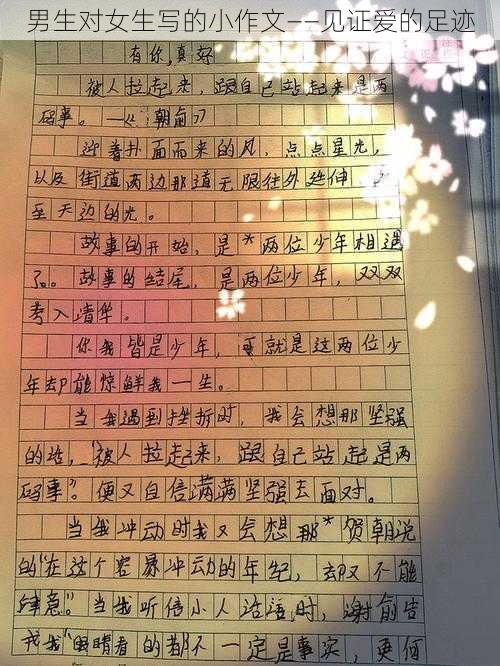 男生对女生写的小作文——见证爱的足迹
有你,真好
被人拉起来,跟自己站起来是两
码事。—《朝俞》
迎着扑面而来的风,点点星光,
以及街道两边那道无限往外延伸
至天边的光。
故事的开始,是*两位少年相遇
了。故事的结尾,是两位少年,双双
考入清华。
你我皆是少年,可就是这两位少
年却能惊鲜我一生。
当我遇到挫折时,我会想那坚强
的话,“被人拉起来,跟自己站起是两
码事”。便又自信满满坚强去面对。
当我冲动时我又会想那*贺朝说
的“在这个容易冲动的年纪,却又不能
肆意。”当我听信小人谗语时,谢俞告
我我“眼睛看的都不一定是事实,更何